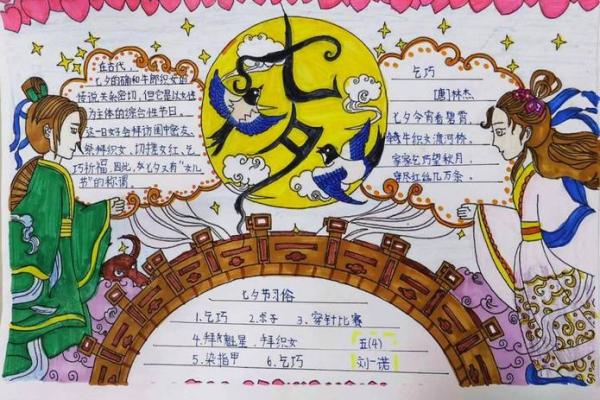 七夕
在古代，
七夕的确和牛郎织女的
传说关系密切，但它是以女性
为主体的综合性节日，
这一日女子会拜访闺中密友、
祭拜织女、切搓女红、乞
巧祈福。因此，七夕又有"女儿
节"的称谓。
乞巧
[唐]林杰
七夕今宵看碧霄，
牵牛织女渡河桥。
家家乞巧望秋月，
穿尽红丝几万条。
七夕节习俗
1.乞巧 2.求子 3.穿针比赛
4.拜魁星、拜织女 五(4)
5.染指甲 6.乞巧 刘一诺